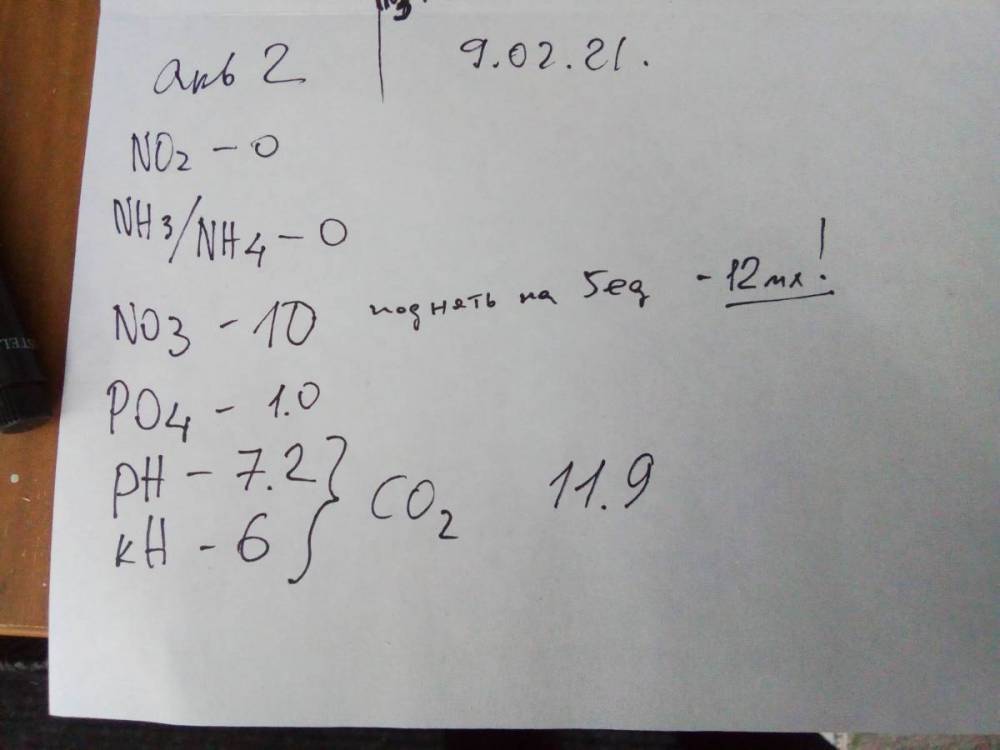 акв 2
9.02.21.
NO2 - 0
NH3/NH4 - 0
NO3 - 10 поднять на 5ед - 12мл!
PO4 - 1.0
pH - 7.2
kH - 6
CO2 11.9